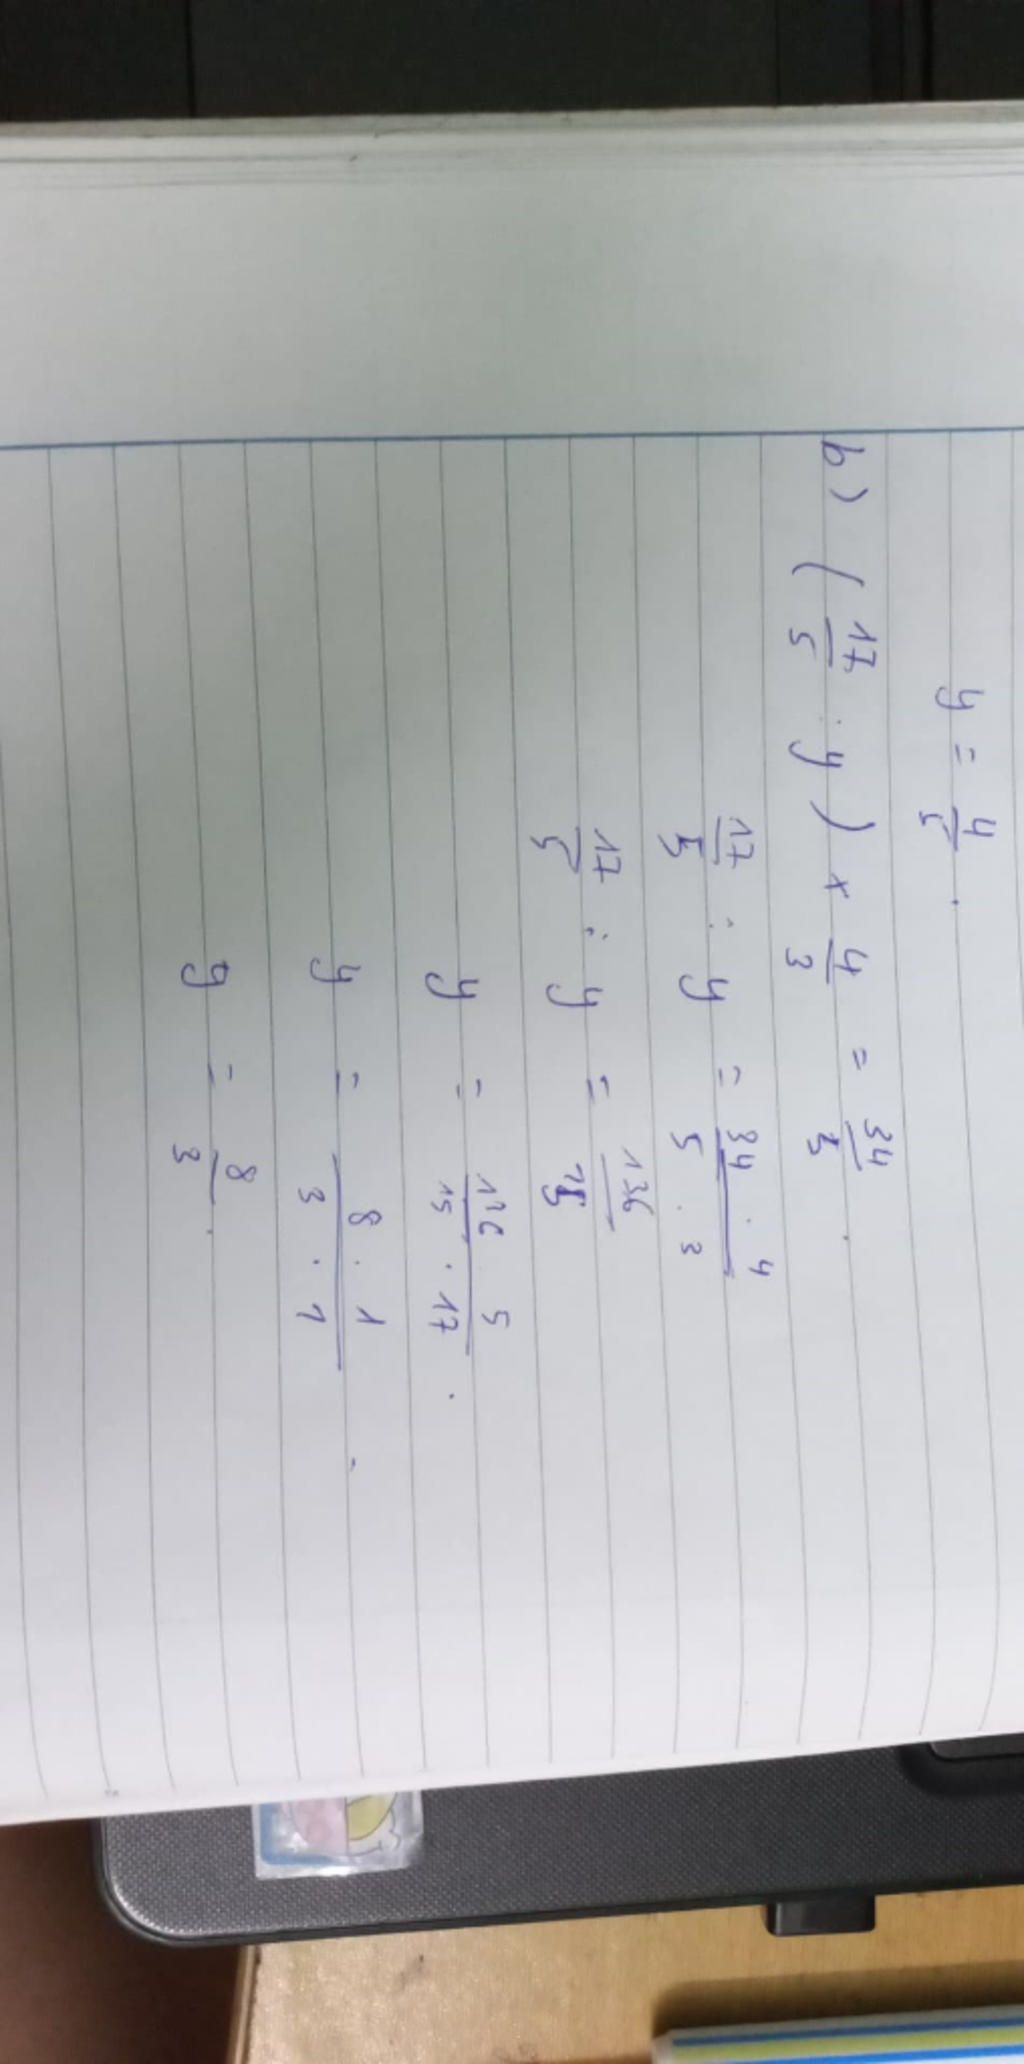 y = 4/5 .
b) ( 17/5 : y ) x 4/3 = 34/5 .
17/5 : y = 34 . 4 / 5 . 3
17/5 : y = 136/15
y = 136 . 5 / 15 . 17 .
y = 8 . 1 / 3 . 1 .
y = 8/3 .